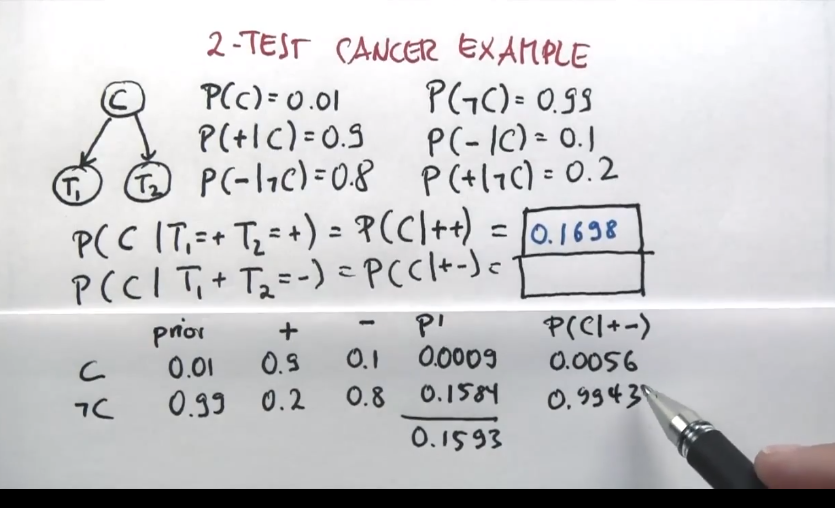 2-TEST CANCER EXAMPLE
C P(C)=0.01 P(¬C)=0.99
P(+|C)=0.9 P(-|C)=0.1
T₁ T₂ P(-|¬C)=0.8 P(+|¬C)=0.2
P(C|T₁=+ T₂=+) = P(C|++) = 0.1698
P(C|T₁+ T₂=-) = P(C|+-) =
prior + - P' P(C|+-)
C 0.01 0.9 0.1 0.0009 0.0056
¬C 0.99 0.2 0.8 0.1584
0.1593